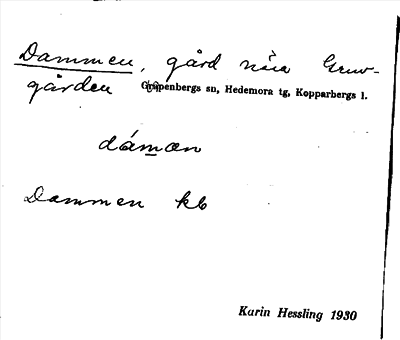 Dammen, gård nära Gruv-
gården Grupenbergs sn, Hedemora tg, Kopparbergs l.
dámæn
Dammen kb
Karin Hessling 1930